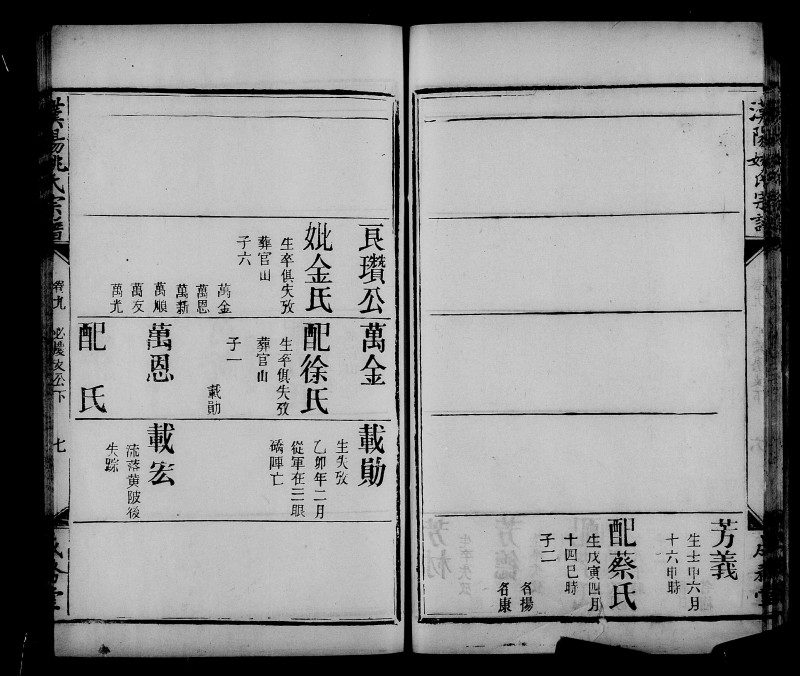 芳義
生壬申六月
十六申時
配蔡氏
生戊寅四月
十四巳時
子二
名揚
名康
良瓚公
妣金氏
生卒俱失攷
葬官山
子六
萬金
萬恩
萬新
萬順
萬友
萬光
萬金
配徐氏
生卒俱失攷
葬官山
子一
載勛
萬恩
配 氏
載勛
生失攷
乙卯年二月
從軍在三眼
橋陣亡
載宏
流落黄陂後
失踪
漢陽姚氏宗譜
卷九
七